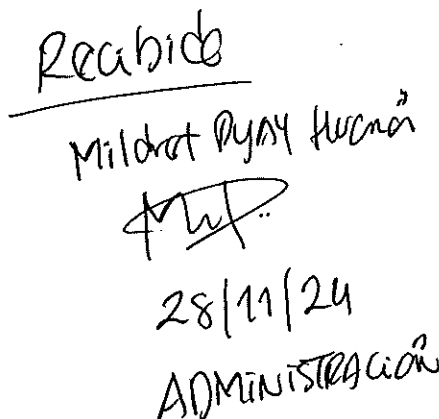 Recibido
Mildret Pynay Huamán
28/11/24
ADMINISTRACIÓN